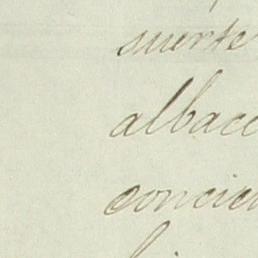 suerte
albace
concien